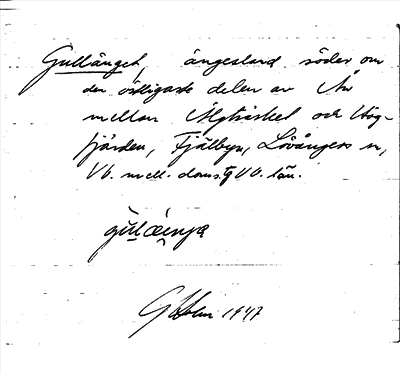 Gullänget, ängesland söder om
den östligaste delen av Ån
mellan Älgträsket och Hög-
fjärden, Fjälbyn, Lövångers sn,
Vb. mell. doms. Vb. län.
G 1947